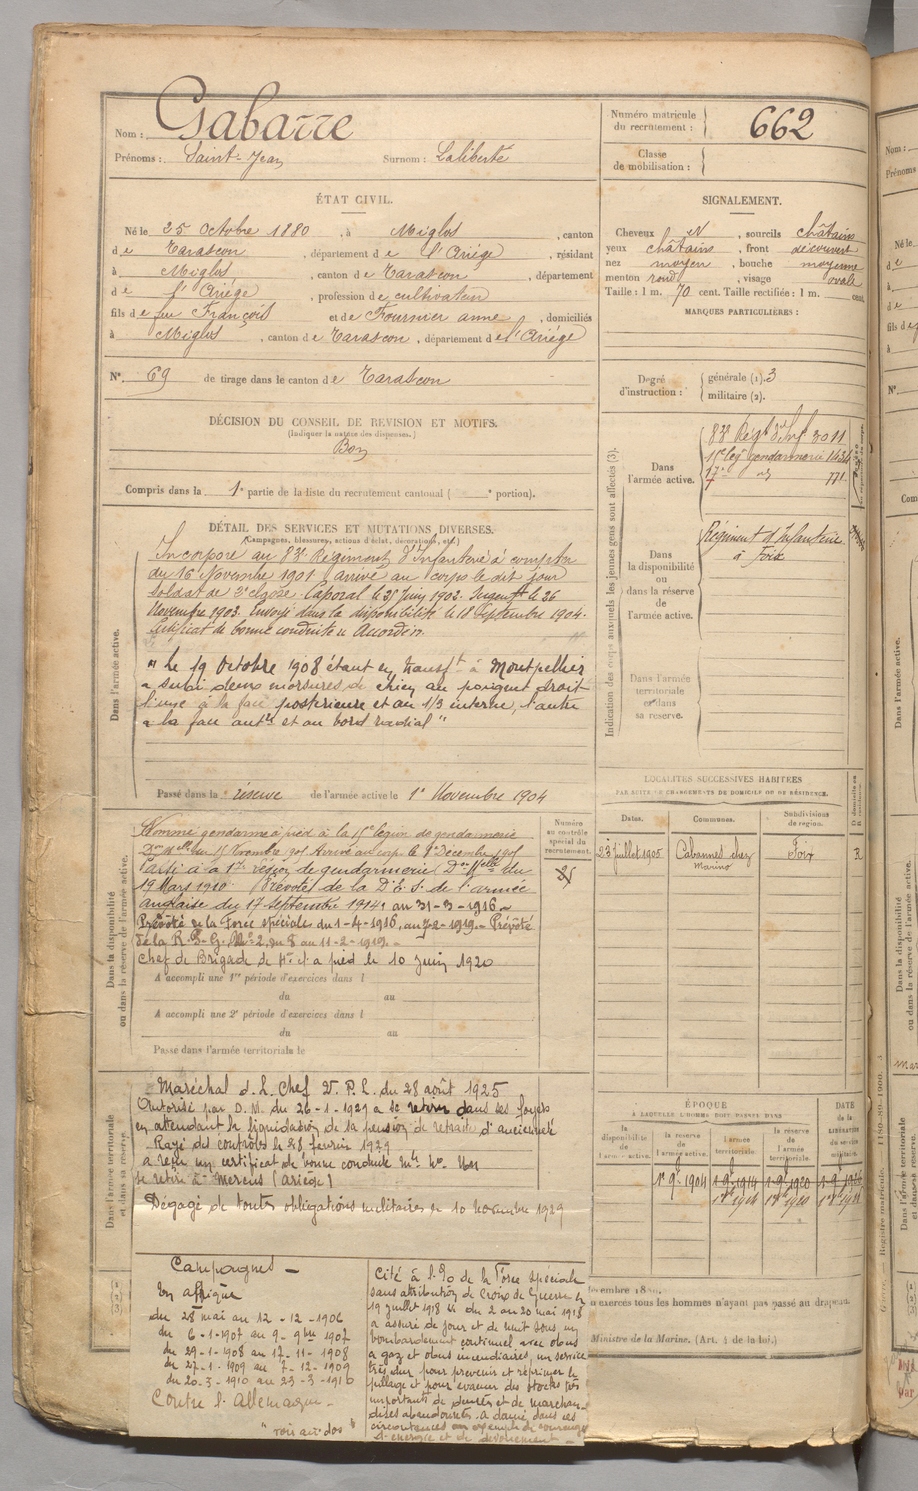 Nom : Gabarre
Prénoms : Saint-Jean Surnom : Laliberté
Numéro matricule du recrutement : 662
Classe de mobilisation :
ÉTAT CIVIL.
Né le 25 Octobre 1880, à Miglos, canton
de Tarascon, département de l'Ariège, résidant
à Miglos, canton de Tarascon, département
de l'Ariège, profession de cultivateur
fils de feu François et de Fournier anne, domiciliés
à Miglos, canton de Tarascon, département de l'Ariége
N° 69 de tirage dans le canton de Tarascon
SIGNALEMENT.
Cheveux N, sourcils châtains
yeux châtains, front découvert
nez moyen, bouche moyenne
menton rond, visage ovale
Taille : 1 m. 70 cent. Taille rectifiée : 1 m. cent.
MARQUES PARTICULIÈRES :
Degré d'instruction : générale (1). 3
militaire (2).
DÉCISION DU CONSEIL DE REVISION ET MOTIFS.
(Indiquer la nature des dispenses.)
Bon
Compris dans la 1e partie de la liste du recrutement cantonal ( e portion).
DÉTAIL DES SERVICES ET MUTATIONS DIVERSES.
(Campagnes, blessures, actions d'éclat, décorations, etc.)
Dans l'armée active.
Incorporé au 83e Régiment d'Infanterie à compter
du 16 Novembre 1901 arrivé au corps le dit jour
soldat de 2e classe. Caporal le 21 Juin 1902. Sergent le 26
Novembre 1903. Envoyé dans la disponibilité le 18 Septembre 1904.
Certificat de bonne conduite "Accordé".
" le 19 Octobre 1908 étant en transft à Montpellier
a subi deux morsures de chien au poignet droit
l'une à la face postérieure et au 1/3 interne, l'autre
à la face antre et au bord radial "
Passé dans la réserve de l'armée active le 1er Novembre 1904
Indication des corps auxquels les jeunes gens sont affectés (3).
Dans l'armée active.
83e Régt d'Inf 3011
15e leg gendarmerie 1434
17e 771
Dans la disponibilité ou dans la réserve de l'armée active.
Régiment d'Infanterie
à Foix
Dans l'armée territoriale et dans sa réserve.
LOCALITÉS SUCCESSIVES HABITÉES
PAR SUITE DE CHANGEMENTS DE DOMICILE OU DE RÉSIDENCE.
Dates. Communes. Subdivisions de région. D domicile ou R résidence
23 juillet 1905 Cabannes chez Marino Foix R
Dans la disponibilité ou dans la réserve de l'armée active.
Numéro au contrôle spécial du recrutement.
Nommé gendarme à pied à la 15e légion de gendarmerie
Don Mlle du 15 Novembre 1905 Arrivé au corps le 9 Décembre 1905
Passé à la 17e légion de gendarmerie Don Mlle du
19 Mars 1910 Prévôté de la D.E.S. de l'armée
anglaise du 17 septembre 1914 au 31-3-1916
Prévôté de la Force spéciale du 1-4-1916, au 7-2-1919 - Prévôté
de la R.G. N° 2, du 8 au 11-2-1919 -
Chef de Brigade de 4e cl à pied le 10 Juin 1920
A accompli une 1re période d'exercices dans l
du au
A accompli une 2e période d'exercices dans l
du au
Passé dans l'armée territoriale le
Dans l'armée territoriale et dans sa réserve.
Maréchal d.L. Chef D.P.L. du 28 août 1925
Autorisé par D.M. du 26-1-1929 à se retirer dans ses foyers
en attendant la liquidation de sa pension de retraite d'ancienneté
Rayé des contrôles le 28 février 1929
a reçu un certificat de bonne conduite
se retire à Mercus (Ariège)
Dégagé de toutes obligations militaires le 10 novembre 1929
ÉPOQUE
À LAQUELLE L'HOMME DOIT PASSER DANS
DATE de la LIBÉRATION du service militaire.
la disponibilité de l'armée active. la réserve de l'armée active. l'armée territoriale. la réserve de l'armée territoriale.
1er 9bre 1904 1-9-1914 1-9-1920
Campagnes -
En afrique
du 28 mai au 12-12-1906
du 6-1-1907 au 9-9bre 1907
du 29-1-1908 au 17-11-1908
du 27-1-1909 au 7-12-1909
du 20-3-1910 au 23-3-1910
Contre l'Allemagne -
"voir au dos"
Cité à l'O de la Force spéciale
sans attribution de Croix de Guerre le
19 juillet 1918 du 2 au 20 mai 1918
a assuré de jour et de nuit sous un
bombardement continuel avec obus
à gaz et obus incendiaires, un service
très dur pour prévenir et réprimer le
pillage et pour évacuer des stocks très
importants de denrées et de marchan-
dises abandonnées. A donné dans ces
circonstances un exemple de courage
d'énergie et de dévouement -
u exercés tous les hommes n'ayant pas passé au drapeau.
Ministre de la Marine. (Art. 4 de la loi.)